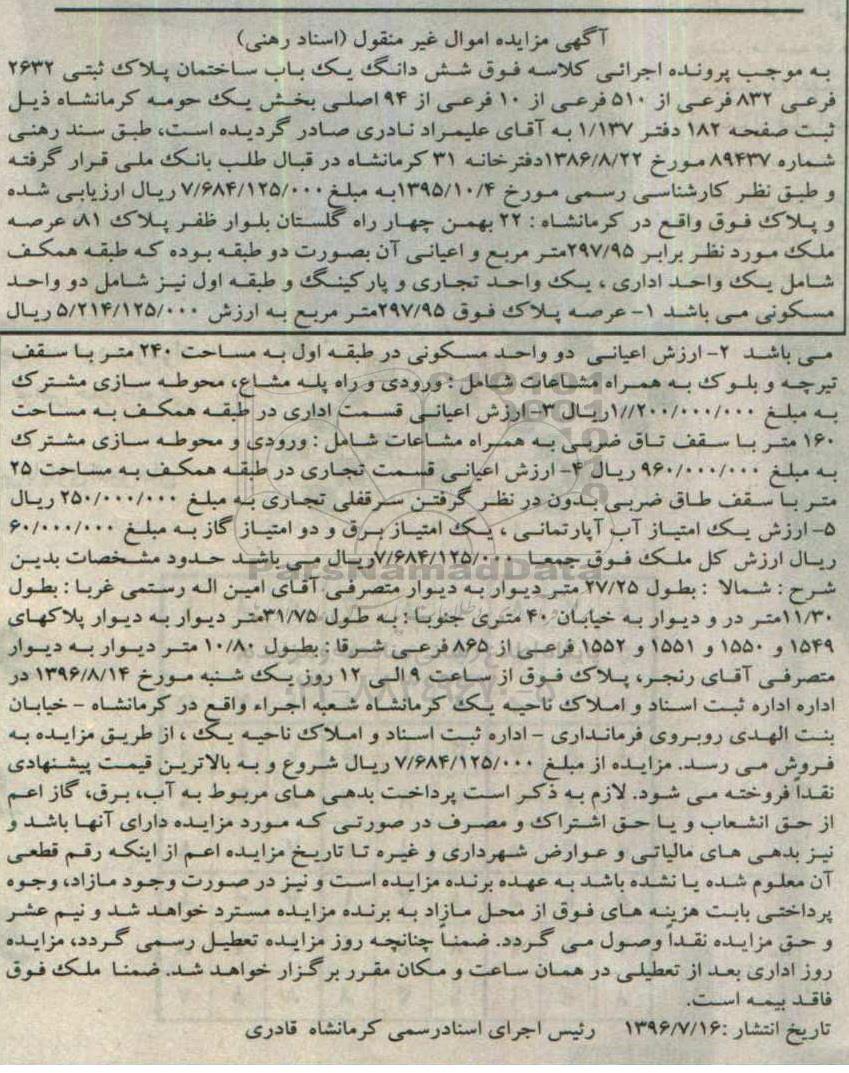 آگهی مزایده اموال غیر منقول (اسناد رهنی)
به موجب پرونده اجرائی کلاسه فوق شش دانگ یک باب ساختمان پلاک ثبتی ۲۶۳۲
فرعی ۸۳۲ فرعی از ۵۱۰ فرعی از ۱۰ فرعی از ۹۴ اصلی بخش یک حومه کرمانشاه ذیل
ثبت صفحه ۱۸۲ دفتر ۱/۱۳۷ به آقای علیمراد نادری صادر گردیده است، طبق سند رهنی
شماره ۸۹۴۳۷ مورخ ۱۳۸۶/۸/۲۲دفترخانه ۳۱ کرمانشاه در قبال طلب بانک ملی قرار گرفته
و طبق نظر کارشناسی رسمی مورخ ۱۳۹۵/۱۰/۴به مبلغ ۷/۶۸۴/۱۲۵/۰۰۰ ریال ارزیابی شده
و پلاک فوق واقع در کرمانشاه : ۲۲ بهمن چهار راه گلستان بلوار ظفر پلاک ۸۱، عرصه
ملک مورد نظر برابر ۲۹۷/۹۵متر مربع و اعیانی آن بصورت دو طبقه بوده که طبقه همکف
شامل یک واحد اداری ، یک واحد تجاری و پارکینگ و طبقه اول نیز شامل دو واحد
مسکونی می باشد ۱- عرصه پلاک فوق ۲۹۷/۹۵متر مربع به ارزش ۵/۲۱۴/۱۲۵/۰۰۰ ریال
می باشد ۲- ارزش اعیانی دو واحد مسکونی در طبقه اول به مساحت ۲۴۰ متر با سقف
تیرچه و بلوک به همراه مشاعات شامل : ورودی و راه پله مشاع، محوطه سازی مشترک
به مبلغ ۱//۲۰۰/۰۰۰/۰۰۰ریال ۳- ارزش اعیانی قسمت اداری در طبقه همکف به مساحت
۱۶۰ متر با سقف تاق ضربی به همراه مشاعات شامل : ورودی و محوطه سازی مشترک
به مبلغ ۹۶۰/۰۰۰/۰۰۰ ریال ۴- ارزش اعیانی قسمت تجاری در طبقه همکف به مساحت ۲۵
متر با سقف طاق ضربی بدون در نظر گرفتن سرقفلی تجاری به مبلغ ۲۵۰/۰۰۰/۰۰۰ ریال
۵- ارزش یک امتیاز آب آپارتمانی ، یک امتیاز برق و دو امتیاز گاز به مبلغ ۶۰/۰۰۰/۰۰۰
ریال ارزش کل ملک فوق جمعا ۷/۶۸۴/۱۲۵/۰۰۰ریال می باشد حدود مشخصات بدین
شرح : شمالا : بطول ۲۷/۲۵ متر دیوار به دیوار متصرفی آقای امین اله رستمی غربا : بطول
۱۱/۳۰متر در و دیوار به خیابان ۴۰ متری جنوبا : به طول ۳۱/۷۵متر دیوار به دیوار پلاکهای
۱۵۴۹ و ۱۵۵۰ و ۱۵۵۱ و ۱۵۵۲ فرعی از ۸۶۵ فرعی شرقا : بطول ۱۰/۸۰ متر دیوار به دیوار
متصرفی آقای رنجبر، پلاک فوق از ساعت ۹ الی ۱۲ روز یک شنبه مورخ ۱۳۹۶/۸/۱۴ در
اداره اداره ثبت اسناد و املاک ناحیه یک کرمانشاه شعبه اجراء واقع در کرمانشاه - خیابان
بنت الهدی روبروی فرمانداری - اداره ثبت اسناد و املاک ناحیه یک ، از طریق مزایده به
فروش می رسد. مزایده از مبلغ ۷/۶۸۴/۱۲۵/۰۰۰ ریال شروع و به بالاترین قیمت پیشنهادی
نقداً فروخته می شود. لازم به ذکر است پرداخت بدهی های مربوط به آب، برق، گاز اعم
از حق انشعاب و یا حق اشتراک و مصرف در صورتی که مورد مزایده دارای آنها باشد و
نیز بدهی های مالیاتی و عوارض شهرداری و غیره تا تاریخ مزایده اعم از اینکه رقم قطعی
آن معلوم شده یا نشده باشد به عهده برنده مزایده است و نیز در صورت وجود مازاد، وجوه
پرداختی بابت هزینه های فوق از محل مازاد به برنده مزایده مسترد خواهد شد و نیم عشر
و حق مزایده نقداً وصول می گردد. ضمناً چنانچه روز مزایده تعطیل رسمی گردد، مزایده
روز اداری بعد از تعطیلی در همان ساعت و مکان مقرر برگزار خواهد شد. ضمنا ملک فوق
فاقد بیمه است.
تاریخ انتشار :۱۳۹۶/۷/۱۶ رئیس اجرای اسنادرسمی کرمانشاه قادری
ParsNamadData